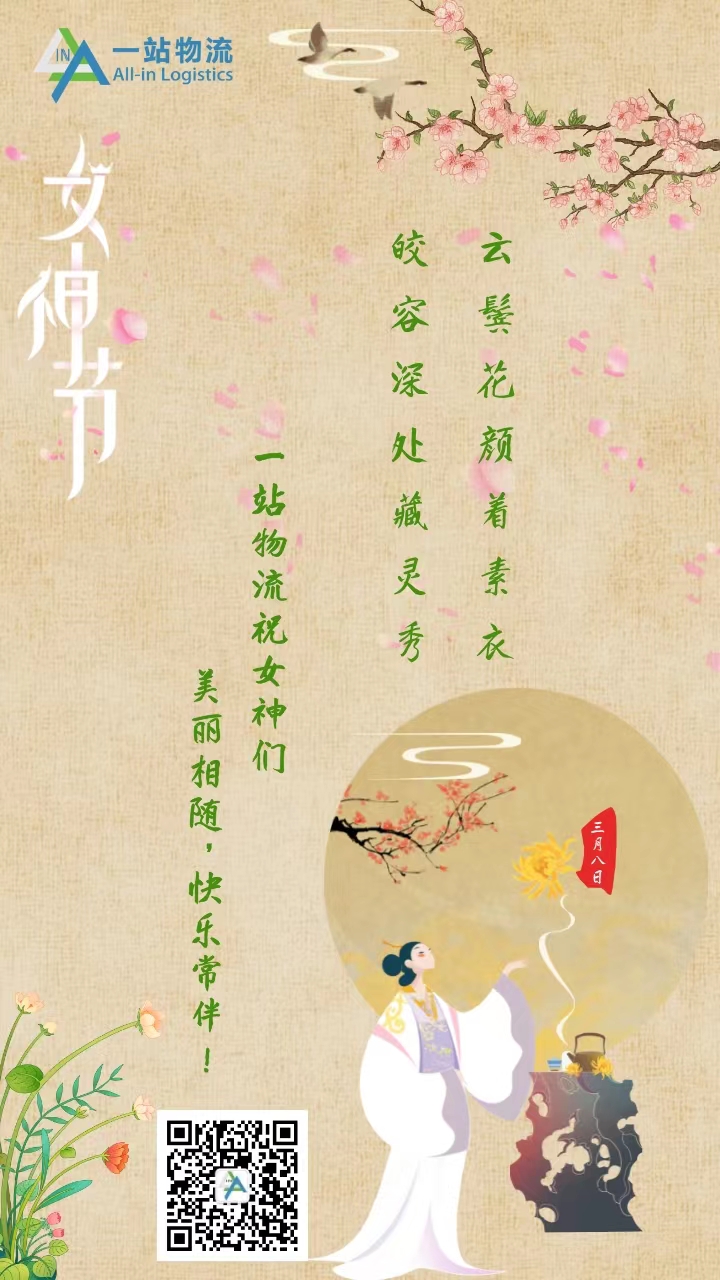 IN
一站物流
All-in Logistics
女神节
云鬓花颜着素衣
皎容深处藏灵秀
一站物流祝女神们
美丽相随，快乐常伴！
三月八日